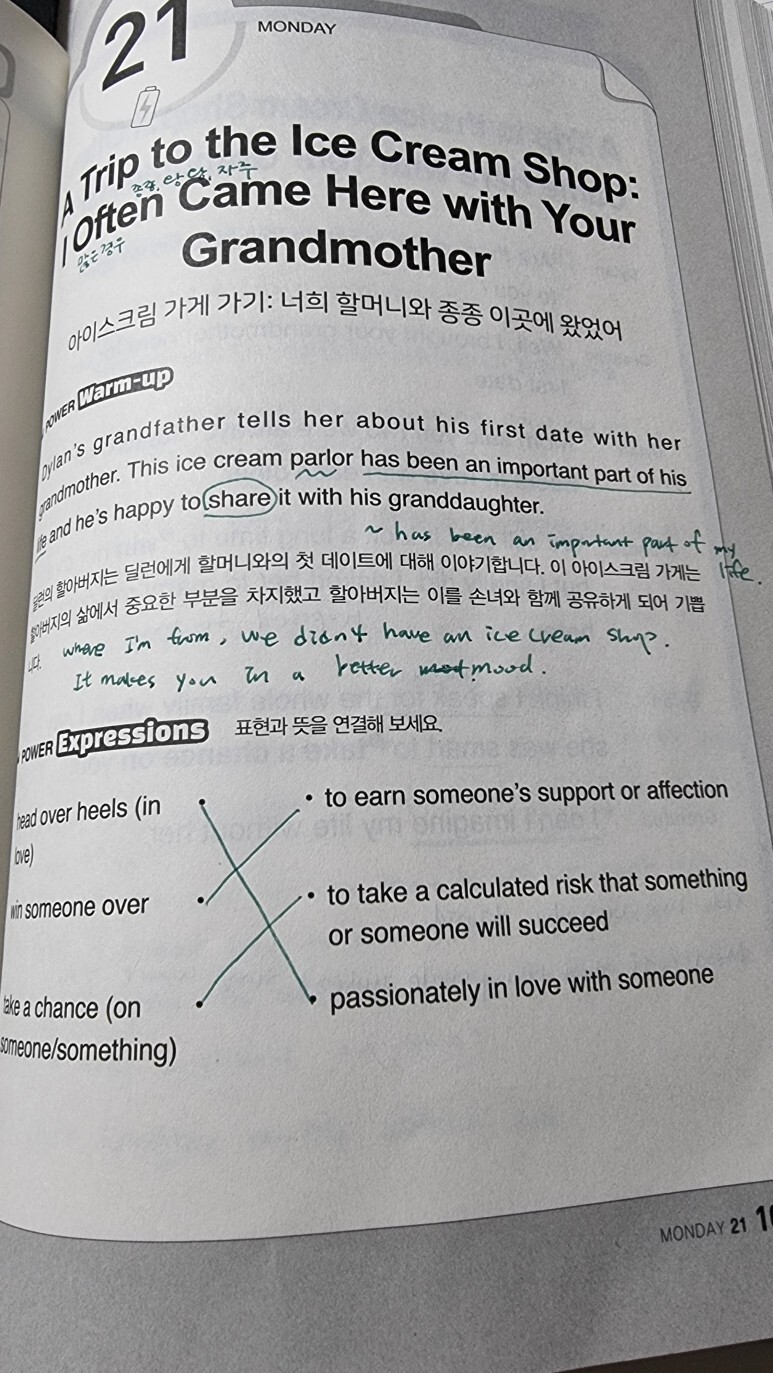 21
MONDAY
A Trip to the Ice Cream Shop:
종종, 왕왕, 자주
I Often Came Here with Your
많은 경우
Grandmother
아이스크림 가게 가기: 너희 할머니와 종종 이곳에 왔었어
POWER Warm-up
Dylan's grandfather tells her about his first date with her
grandmother. This ice cream parlor has been an important part of his
life and he's happy to share it with his granddaughter.
~ has been an important part of my
life.
딜런의 할아버지는 딜런에게 할머니와의 첫 데이트에 대해 이야기합니다. 이 아이스크림 가게는
할아버지의 삶에서 중요한 부분을 차지했고 할아버지는 이를 손녀와 함께 공유하게 되어 기쁩
니다.
where I'm from, we didn't have an ice cream shop.
It makes you in a better mood.
POWER Expressions 표현과 뜻을 연결해 보세요.
head over heels (in
love)
• to earn someone's support or affection
win someone over •
• to take a calculated risk that something
or someone will succeed
take a chance (on
someone/something) •
• passionately in love with someone
MONDAY 21